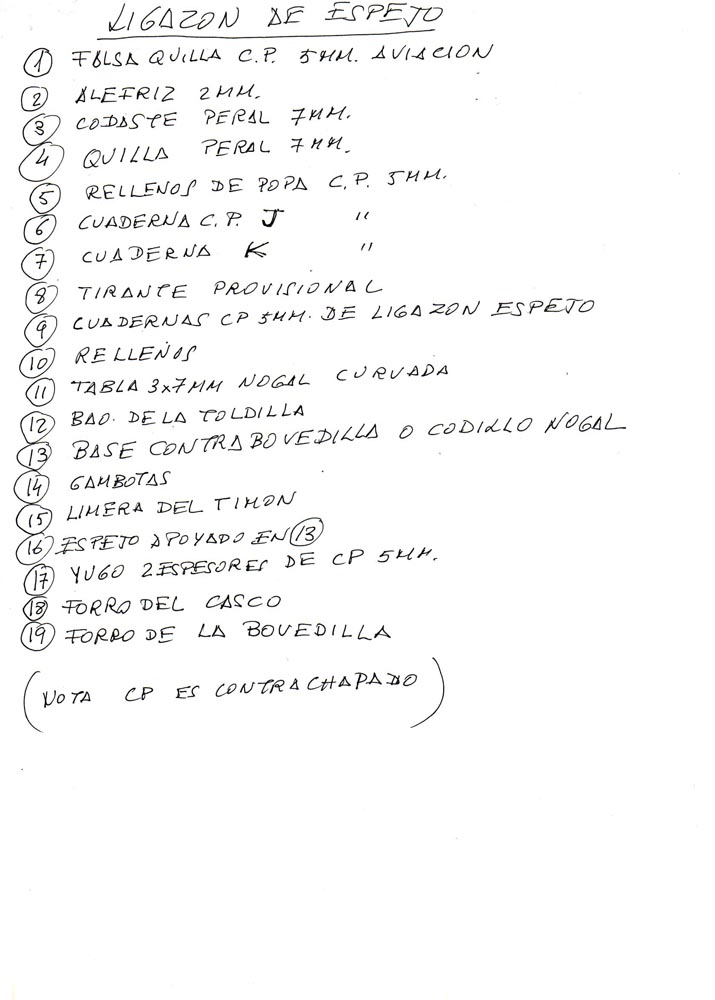 LIGAZON DE ESPEJO
1 FALSA QUILLA C.P. 5MM. AVIACION
2 ALEFRIZ 2MM.
3 CODASTE PERAL 7MM.
4 QUILLA PERAL 7MM.
5 RELLENOS DE POPA C.P. 5MM.
6 CUADERNA C.P. J "
7 CUADERNA K "
8 TIRANTE PROVISIONAL
9 CUADERNAS CP 5MM. DE LIGAZON ESPEJO
10 RELLENOS
11 TABLA 3x7MM NOGAL CURVADA
12 BAO. DE LA TOLDILLA
13 BASE CONTRABOVEDILLA O CODILLO NOGAL
14 GAMBOTAS
15 LIMERA DEL TIMON
16 ESPEJO APOYADO EN 13
17 YUGO 2 ESPESORES DE CP 5MM.
18 FORRO DEL CASCO
19 FORRO DE LA BOVEDILLA
(NOTA CP ES CONTRACHAPADO)